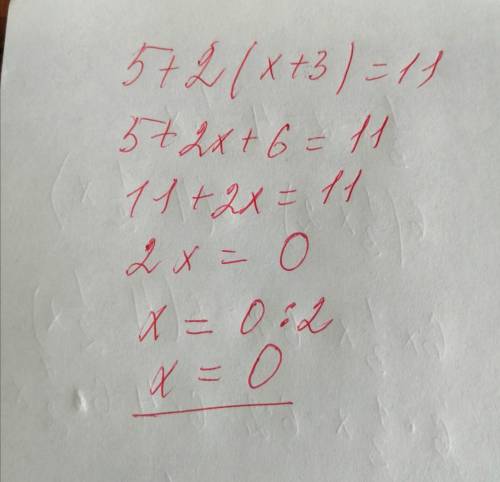 5+2(x+3)=11
5+2x+6=11
11+2x=11
2x=0
x=0:2
x=0